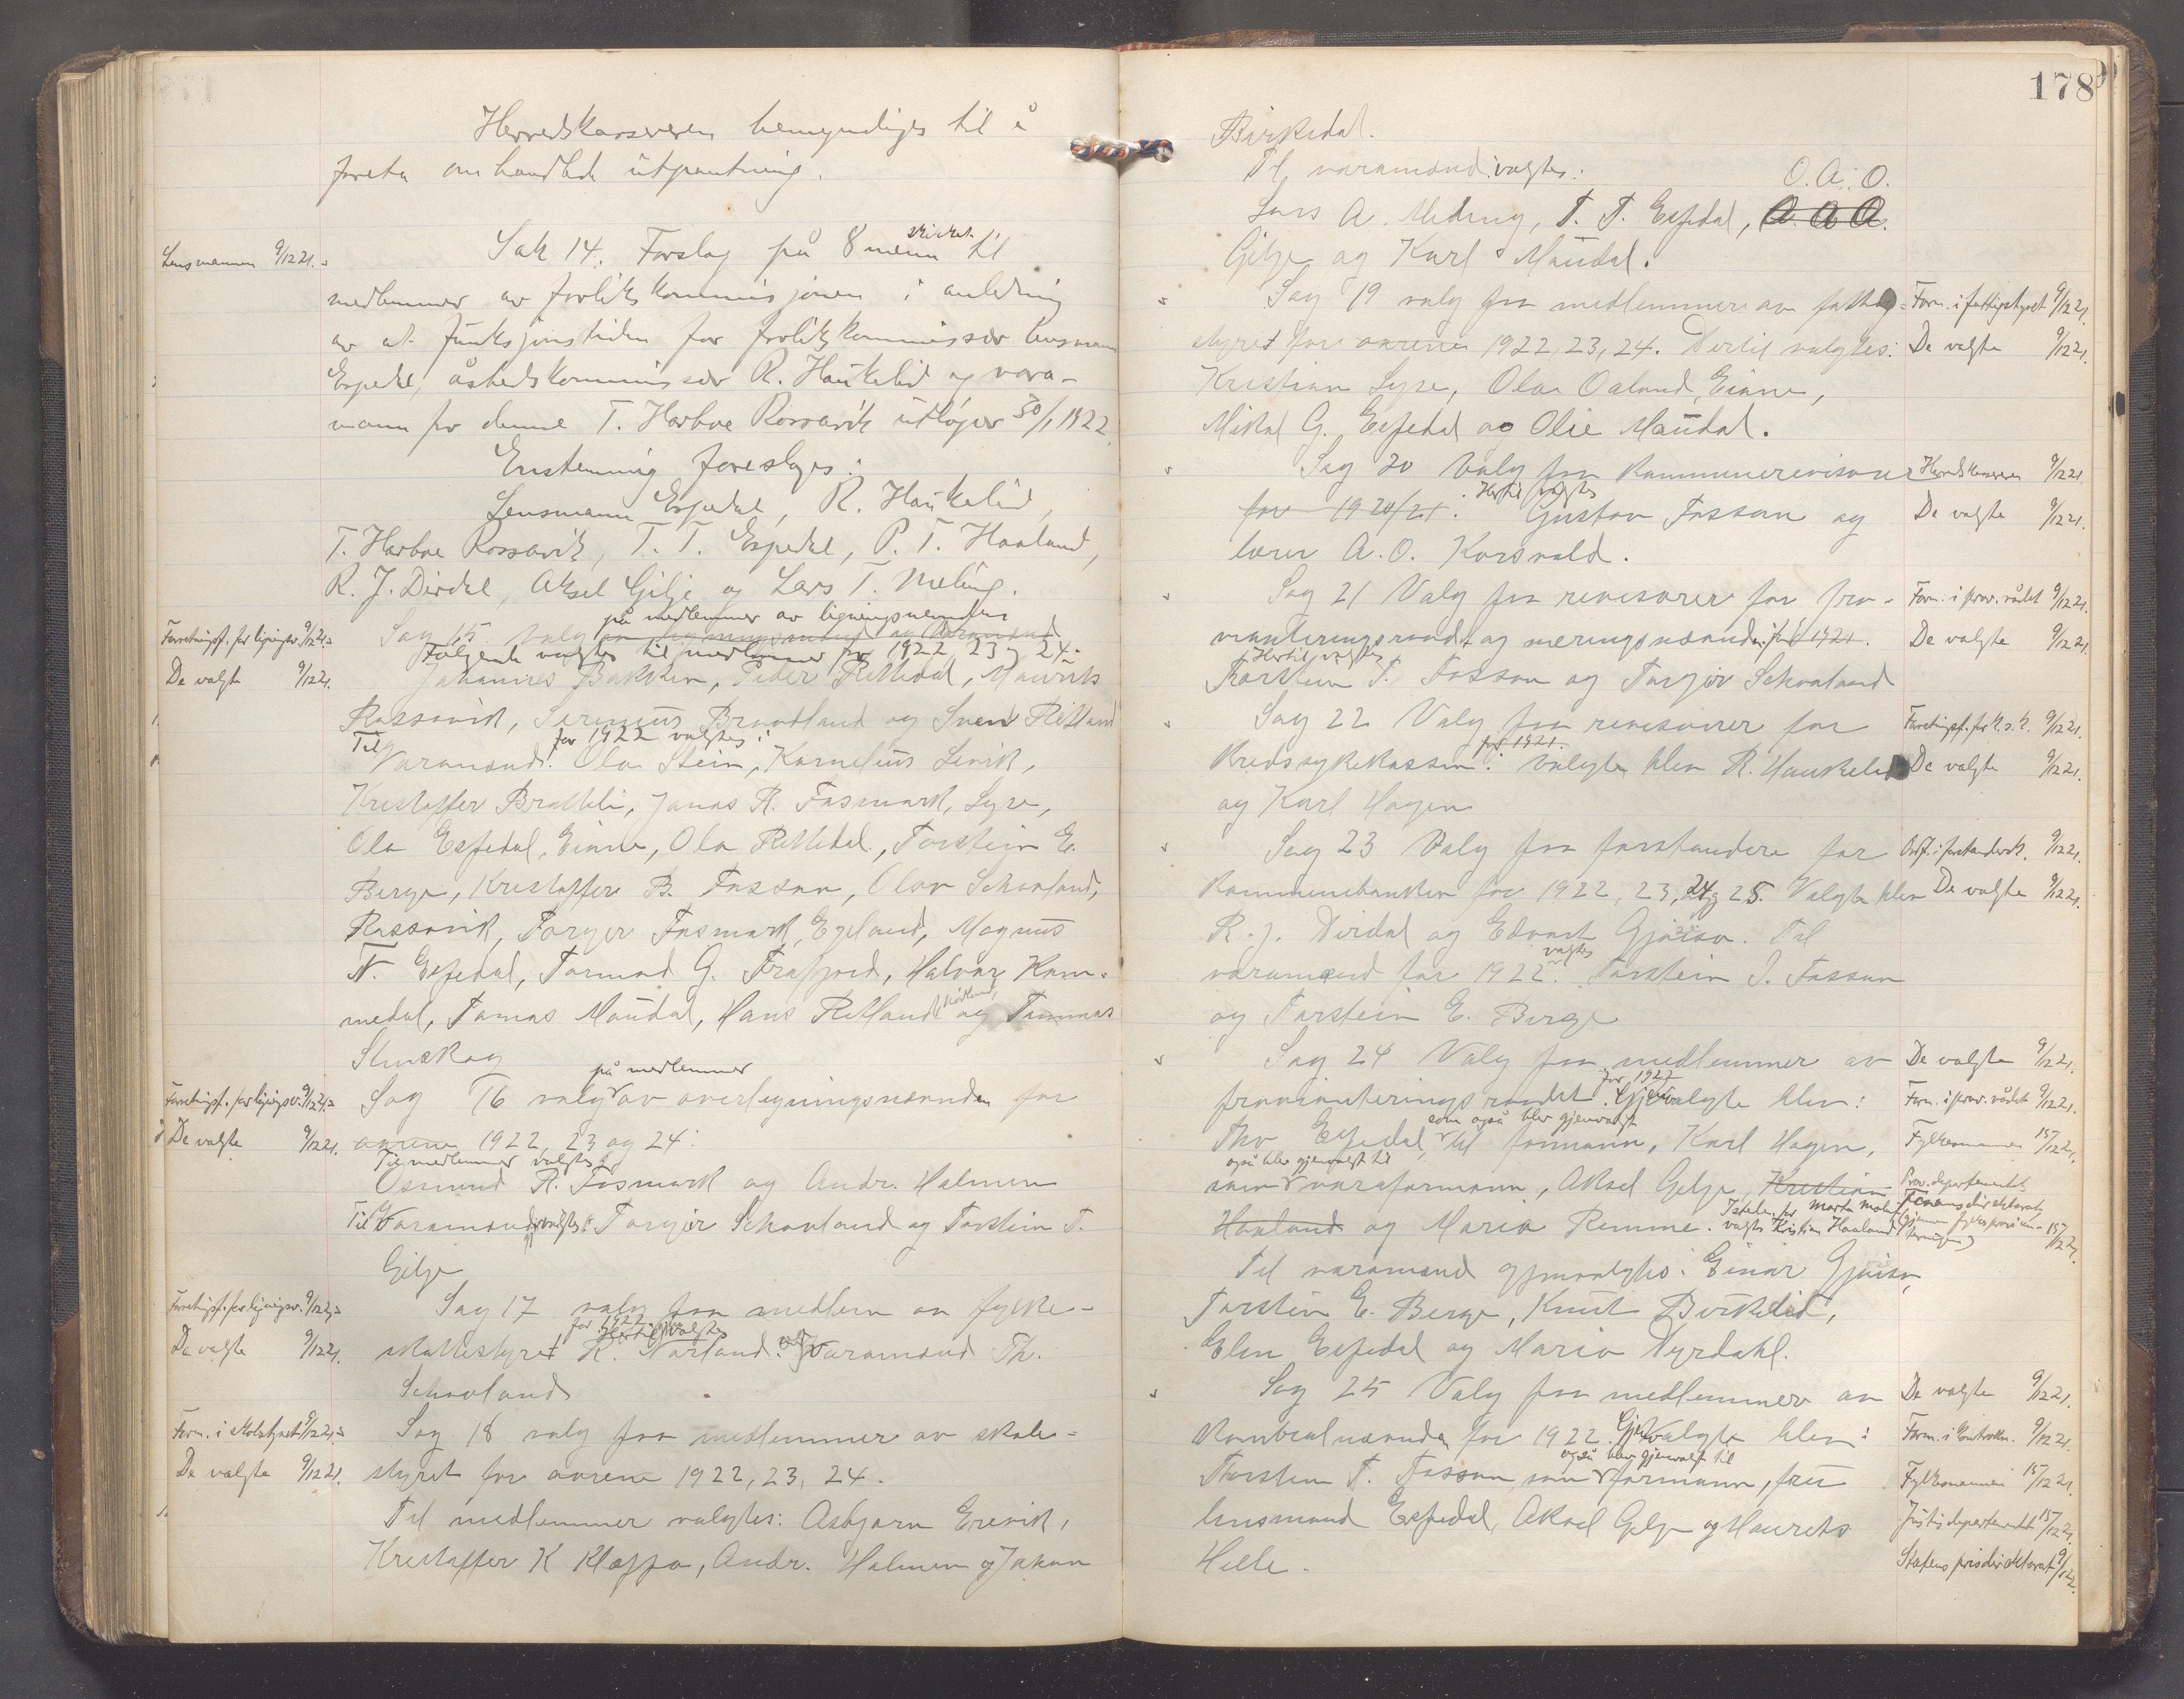 Herredskassereren bemyndiges til å
foreta omhandlede utpantning.
Lensmannen 9/12 21.
Sak 14. Forslag på 8 menn skikket til
medlemmer av forlikskommisjonen i anledning
av at funksjonstiden for forlikskommissær lensmann
Espedal, åstedskommissær R. Haukelid og vara-
mann for denne T. Harboe Rossavik utløper 30/1 1922.
Enstemmig foreslåes:
Lensmann Espedal, R. Haukelid,
T. Harboe Rossavik, T. T. Espedal, P. T. Haaland,
R. J. Dirdal, Aksel Gilje og Lars T. Meling.
Forretningsf. for ligningsv. 9/12 21.
De valgte 9/12 21.
Sag 15. Valg på medlemmer av ligningsnemnden
Følgende valgtes til medlemmer for 1922 23 og 24:
Johannes Bakken, Peder Rettedal, Maurits
Rossavik, Serenius Brandland og Svend Ritland
Til Varamænd for 1922 valgtes: Ola Stein, Kornelius Levik,
Kristoffer Brattli, Jonas R. Fosmark, Lyse,
Ola Espedal, Eiane, Ola Rettedal, Torstein E.
Berge, Kristoffer B. Fossan, Olav Schaaland,
Rossavik, Torger Fosmark, Egeland, Magnus
N. Espedal, Tormod G. Frafjord, Halvar Kom-
medal, Tomas Maudal, Hans Ritland og Tommas
Slenskog
Forretningsf. for ligningsv. 9/12 21.
De valgte 9/12 21.
Sag 16 valg på medlemmer av overligningsnævnden for
aarene 1922, 23 og 24:
Til medlemmer valgtes:
Osmund R. Fosmark og Andr. Halmen
Til Varamænd valgtes: Torgér Schaaland og Torstein T.
Gilje
Forretningsf. for ligningsv. 9/12 21.
De valgte 9/12 21.
Sag 17 valg paa medlem av fylke-
skattestyret for 1922 Hertil valgtes R. Norland. Varamand Th.
Schaaland
Form. i skolestyret 9/12 21.
De valgte 9/12 21.
Sag 18 valg paa medlemmer av skole-
styret for aarene 1922, 23, 24.
Til medlemmer valgtes: Asbjørn Erevik,
Kristoffer K Kloppa, Andr. Halmen og Jakon
178
Birkedal.
Til varamænd valgtes: O. A. O.
Lars A. Meling, T. T. Espedal, A. A. A.
Gilje og Karl Maudal.
Sag 19 valg paa medlemmer av fattig-
Form. i fattigstyret 9/12 21.
styret for aarene 1922, 23, 24. Dertil valgtes:
De valgte 9/12 21.
Kristian Lyse, Ola Oaland, Eiane,
Mikal G. Espedal og Olie Maudal.
Sag 20 Valg paa Kommunerevisorer
Herredskassereren 9/12 21.
for 1920/21. Hertil valgtes Gustav Fossan og
De valgte 9/12 21.
lærer A. O. Korsvold.
Sag 21 Valg paa revisorer for pro-
Form. i prov. rådet 9/12 21.
vianteringsraad og næringsnævnden for 1921.
De valgte 9/12 21.
Hertil valgtes
Torstein T. Fossan og Torgér Schaaland
Sag 22 Valg paa revisorer for
Forretningsf. for k. s. k. 9/12 21.
Kredssykekassen for 1921. Valgte blev R. Haukelid
De valgte 9/12 21.
og Karl Hagen
Sag 23 Valg paa forstandere for
Ordf. i forstandersk. 9/12 21.
Kommunebanken for 1922, 23, 24 og 25. Valgte blev
De valgte 9/12 21.
R. J. Dirdal og Edvart Gjøisa. Til
varamænd for 1922 valgtes Torstein J. Fossan
og Torstein E. Berge
Sag 24 Valg paa medlemmer av
De valgte 9/12 21.
provianteringsraadet for 1922 Gjenvalgte blev:
Form. i prov. rådet 9/12 21.
Thv Espedal, som også blev gjenvalgt til formann, Karl Hagen,
Fylkesmannen 15/12 21.
som også blev gjenvalgt til varaformann, Aksel Gilje, Kristian
Prov. departementet
Haaland og Maria Remme. Istedenfor Marta valgtes Kristian Haaland
15/12 21.
Til varamænd gjenvalgtes: Einar Gjøisa,
Torstein E. Berge, Knut Birkelid,
Elen Espedal og Maria Dyrdahl.
Sag 25 Valg paa medlemmer av
De valgte 9/12 21.
Kontrolnævnden for 1922. Gjenvalgte blev:
Form. i kontroln. 9/12 21.
Torstein T. Fossan, som også blev gjenvalgt til formann, fru
Fylkesmannen 15/12 21.
lensmand Espedal, Aksel Gilje og Maurits
Justisdepartementet 15/12 21.
Helle.
Statens prisdirektorat 9/1 22.